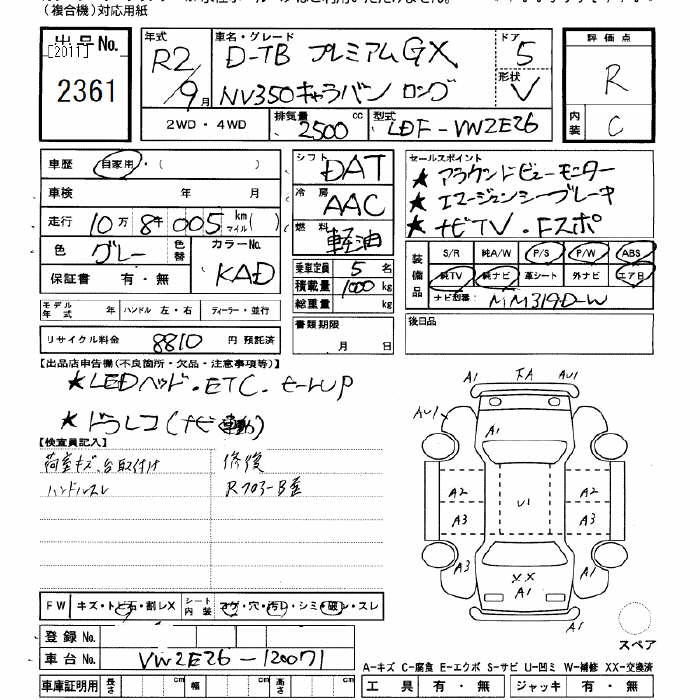 （複合機）対応用紙
出品No.
[2011]
2361
年式 R2/9月
車名・グレード D-TB プレミアムGX
NV350キャラバン ロング
ドア 5
形状 V
評価点
R
内装 C
2WD・4WD
排気量 2500 cc
型式 LDF-VW2E26
車歴 自家用・（ ）
車検 年 月
走行 10万8千005km マイル（ ）
色 グレー 色替
カラーNo. KAD
保証書 有・無
モデル年式 年 ハンドル 左・右 ディーラー・並行
リサイクル料金 8810 円 預託済
シフト DAT
冷房 AAC
燃料 軽油
乗車定員 5 名
積載量 1000 kg
総重量 kg
書類期限
月 日
セールスポイント
★アラウンドビューモニター
★エマージェンシーブレーキ
★ナビTV・Fスポ
装備品
S/R 純A/W P/S P/W ABS
純TV 純ナビ 革シート 外ナビ エアB
ナビ型番 MM319D-W
後日品
【出品店申告欄(不良箇所・欠品・注意事項等)】
★LEDヘッド・ETC・
★ドラレコ(ナビ連動)
【検査員記入】
荷室キズ、台取付け 修復
ハンドルスレ R703-B
FW キズ・トビ石・割レX
シート内装 コゲ・穴・汚レ・シミ・破レ・スレ
登録No.
車台No. VW2E26-120071
車庫証明用 長さ cm 幅 cm 高さ cm
A1 AU1
AU1
A1
A2 U1 A2
A3 A3
A3 XX A1 A1
A1
スペア
A-キズ C-腐食 E-エクボ S-サビ U-凹ミ W-補修 XX-交換済
工具 有・無 ジャッキ 有・無